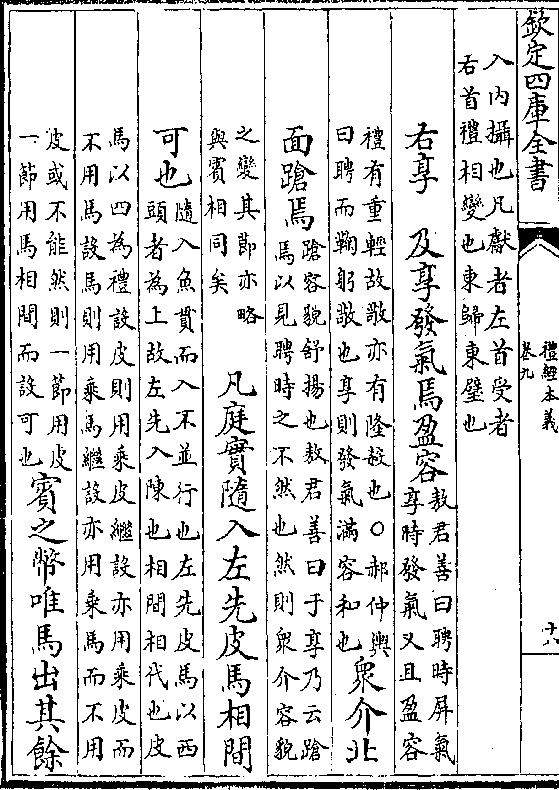 欽定四庫全書
禮經本義
卷九
十六
入內攝也凡獻者左首受者
右首禮相變也東歸東壁也
右享 及享發氣焉盈容
敖君善曰聘時屏氣
享時發氣又且盈容
禮有重輕故敬亦有隆殺也○郝仲輿
曰聘而鞠躬敬也享則發氣滿容和也
衆介北
面蹌焉
蹌容貌舒揚也敖君善曰于享乃云蹌
焉以見聘時之不然也然則衆介容貌
之變其節亦略
與賓相同矣
凡庭實隨入左先皮馬相間
可也
隨入魚貫而入不並行也左先皮馬以西
頭者為上故左先入陳也相間相代也皮
馬以四為禮設皮則用乘皮繼設亦用乘皮而
不用馬設馬則用乘馬繼設亦用乘馬而不用
皮或不能然則一節用皮
一節用馬相間而設可也
賓之幣唯馬出其餘